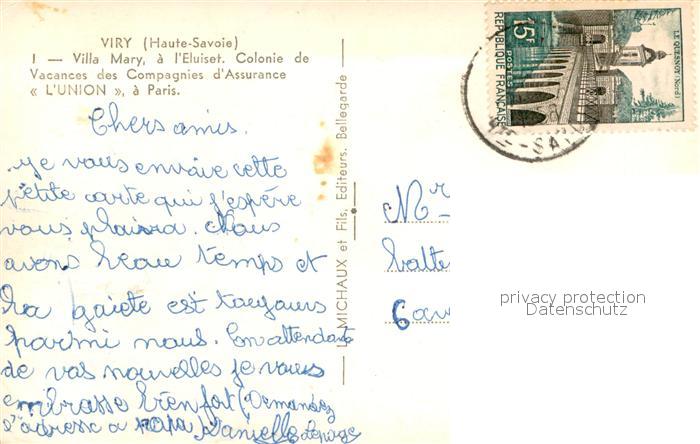 VIRY (Haute-Savoie)
1 — Villa Mary, à l'Eluiset. Colonie de
Vacances des Compagnies d'Assurance
« L'UNION », à Paris.
Chers amis.
Je vous envoie cette
petite carte qui j'espère
vous plaira. Nous
avons beau temps et
la gaieté est toujours
parmi nous. En attendant
de vos nouvelles je vous
embrasse bien fort (Demandez
l'adresse a papa Danielle
MICHAUX et Fils, Editeurs, Bellegarde
15F
POSTES
REPUBLIQUE FRANÇAISE
LE QUESNOY (Nord)
Mr
privacy protection
Datenschutz